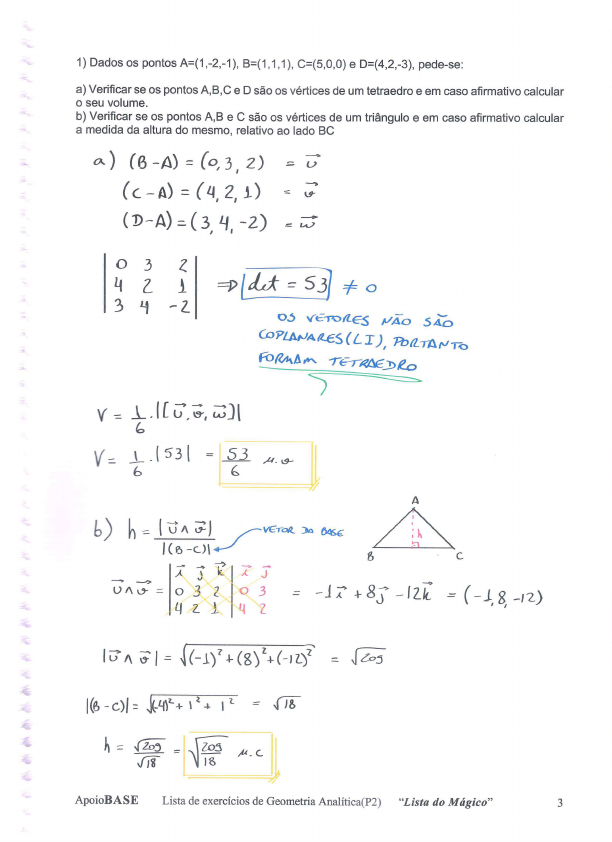 1) Dados os pontos A=(1,-2,-1), B=(1,1,1), C=(5,0,0) e D=(4,2,-3), pede-se:
a) Verificar se os pontos A,B,C e D são os vértices de um tetraedro e em caso afirmativo calcular
o seu volume.
b) Verificar se os pontos A,B e C são os vértices de um triângulo e em caso afirmativo calcular
a medida da altura do mesmo, relativo ao lado BC
a) (B-A) = (0,3,2) = u⃗
(C-A) = (4,2,1) = v⃗
(D-A) = (3,4,-2) = w⃗
|0 3 2|
|4 2 1| ⇒ det = 53 ≠ 0
|3 4 -2|
OS VETORES NÃO SÃO
COPLANARES (LI), PORTANTO
FORMAM TETRAEDRO
V = 1/6 . |[u⃗,v⃗,w⃗]|
V = 1/6 . |53| = 53/6 μ.v
A
h
B C
b) h = |u⃗ ∧ v⃗| / |(B-C)| VETOR DA BASE
u⃗∧v⃗ = |i⃗ j⃗ k⃗| i⃗ j⃗
|0 3 2| 0 3 = -1i⃗ + 8j⃗ - 12k⃗ = (-1,8,-12)
|4 2 1| 4 2
|u⃗ ∧ v⃗| = √(-1)² + (8)² + (-12)² = √209
|(B-C)| = √(-4)² + 1² + 1² = √18
h = √209/√18 = √209/18 μ.c
ApoioBASE Lista de exercícios de Geometria Analítica(P2) “Lista do Mágico” 3